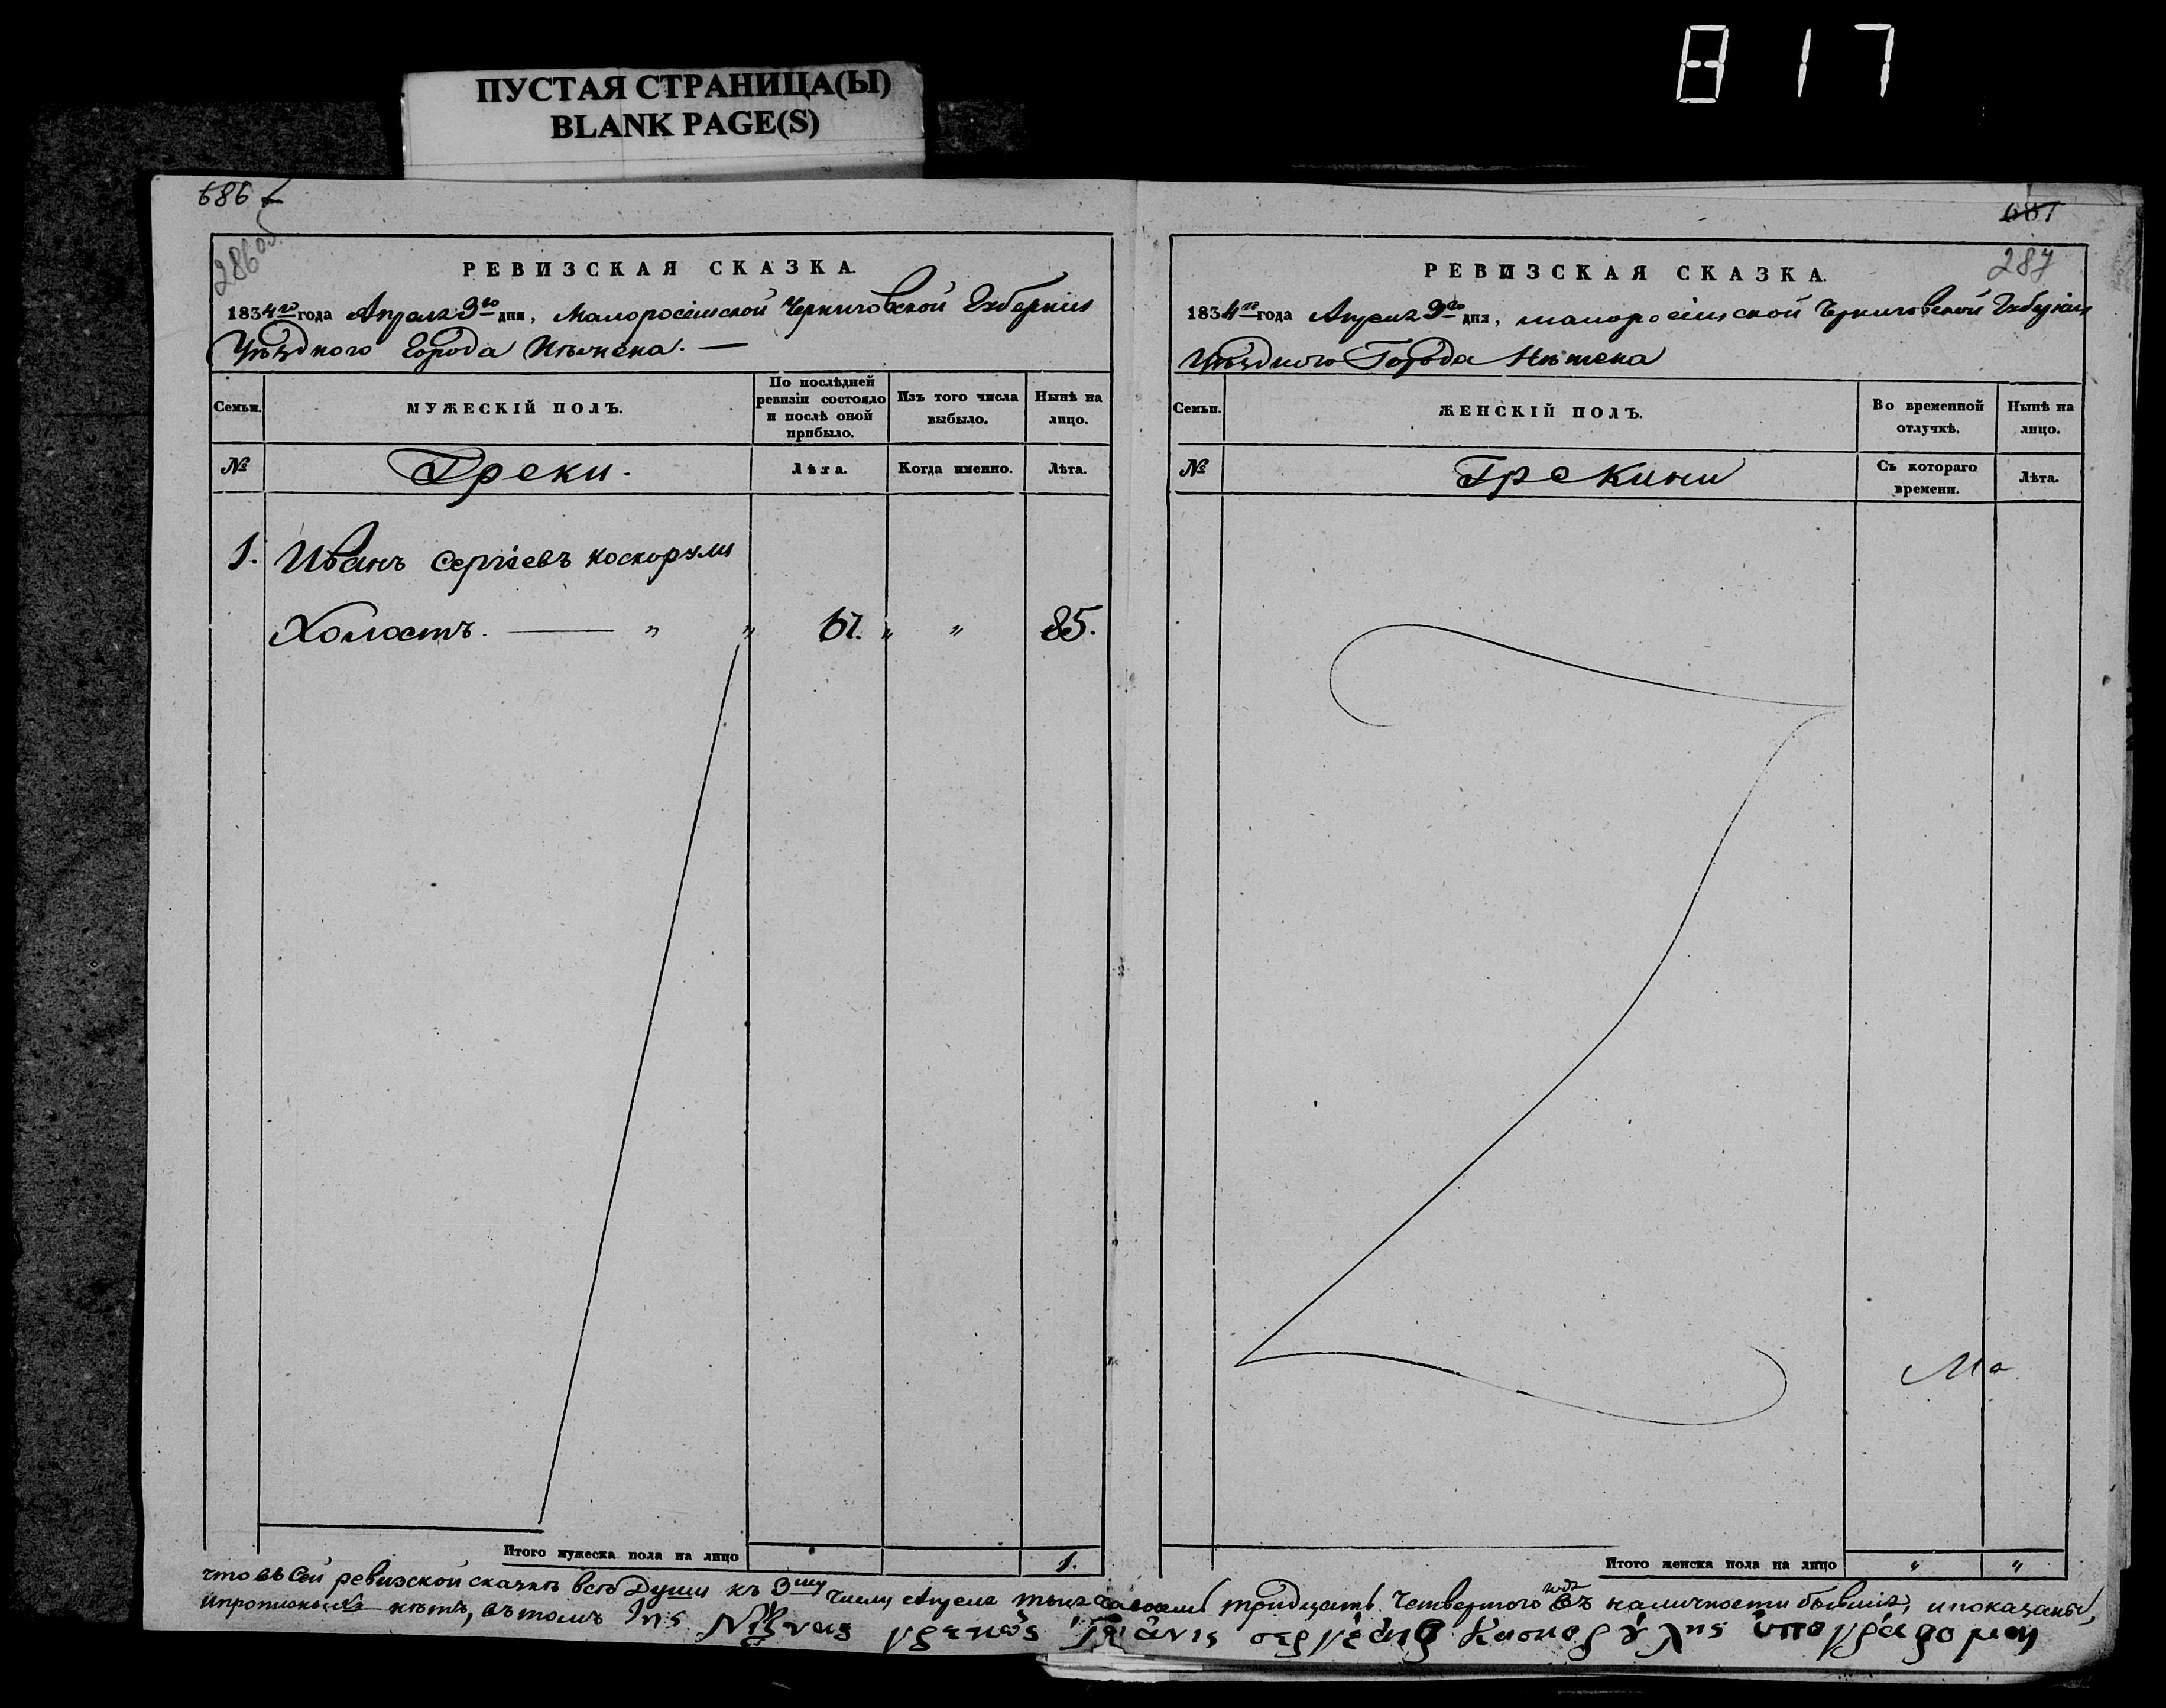 817
ПУСТАЯ СТРАНИЦА(Ы)
BLANK PAGE(S)
686
286 об.
РЕВИЗСКАЯ СКАЗКА.
1834го года Апреля 3го дня, Малоросійской Черниговской Губерніи
Уѣзднаго Города Нѣжена. —
Семьи.
МУЖЕСКІЙ ПОЛЪ.
По послѣдней ревизіи состояло и послѣ оной прибыло.
Изъ того числа выбыло.
Нынѣ на лицо.
№
Греки.
Лѣта.
Когда именно.
Лѣта.
1. Иванъ Сергіевъ Коскорули
Холостъ. — „ „ 67. „ „ 85.
Итого мужеска пола на лицо
1.
687
287
РЕВИЗСКАЯ СКАЗКА.
1834го года Апреля 3го дня, Малоросійской Черниговской Губерніи
Уѣзднаго Города Нѣжена
Семьи.
ЖЕНСКІЙ ПОЛЪ.
Во временной отлучкѣ.
Нынѣ на лицо.
№
Грекини
Съ котораго времени.
Лѣта.
Итого женска пола на лицо „ „
что въ сей ревизской сказкѣ всѣ Души къ 3му числу Апреля тысяча восемь тридцать четвертого года въ наличности бывшія, и показаны,
и прописныхъ нѣтъ, въ томъ